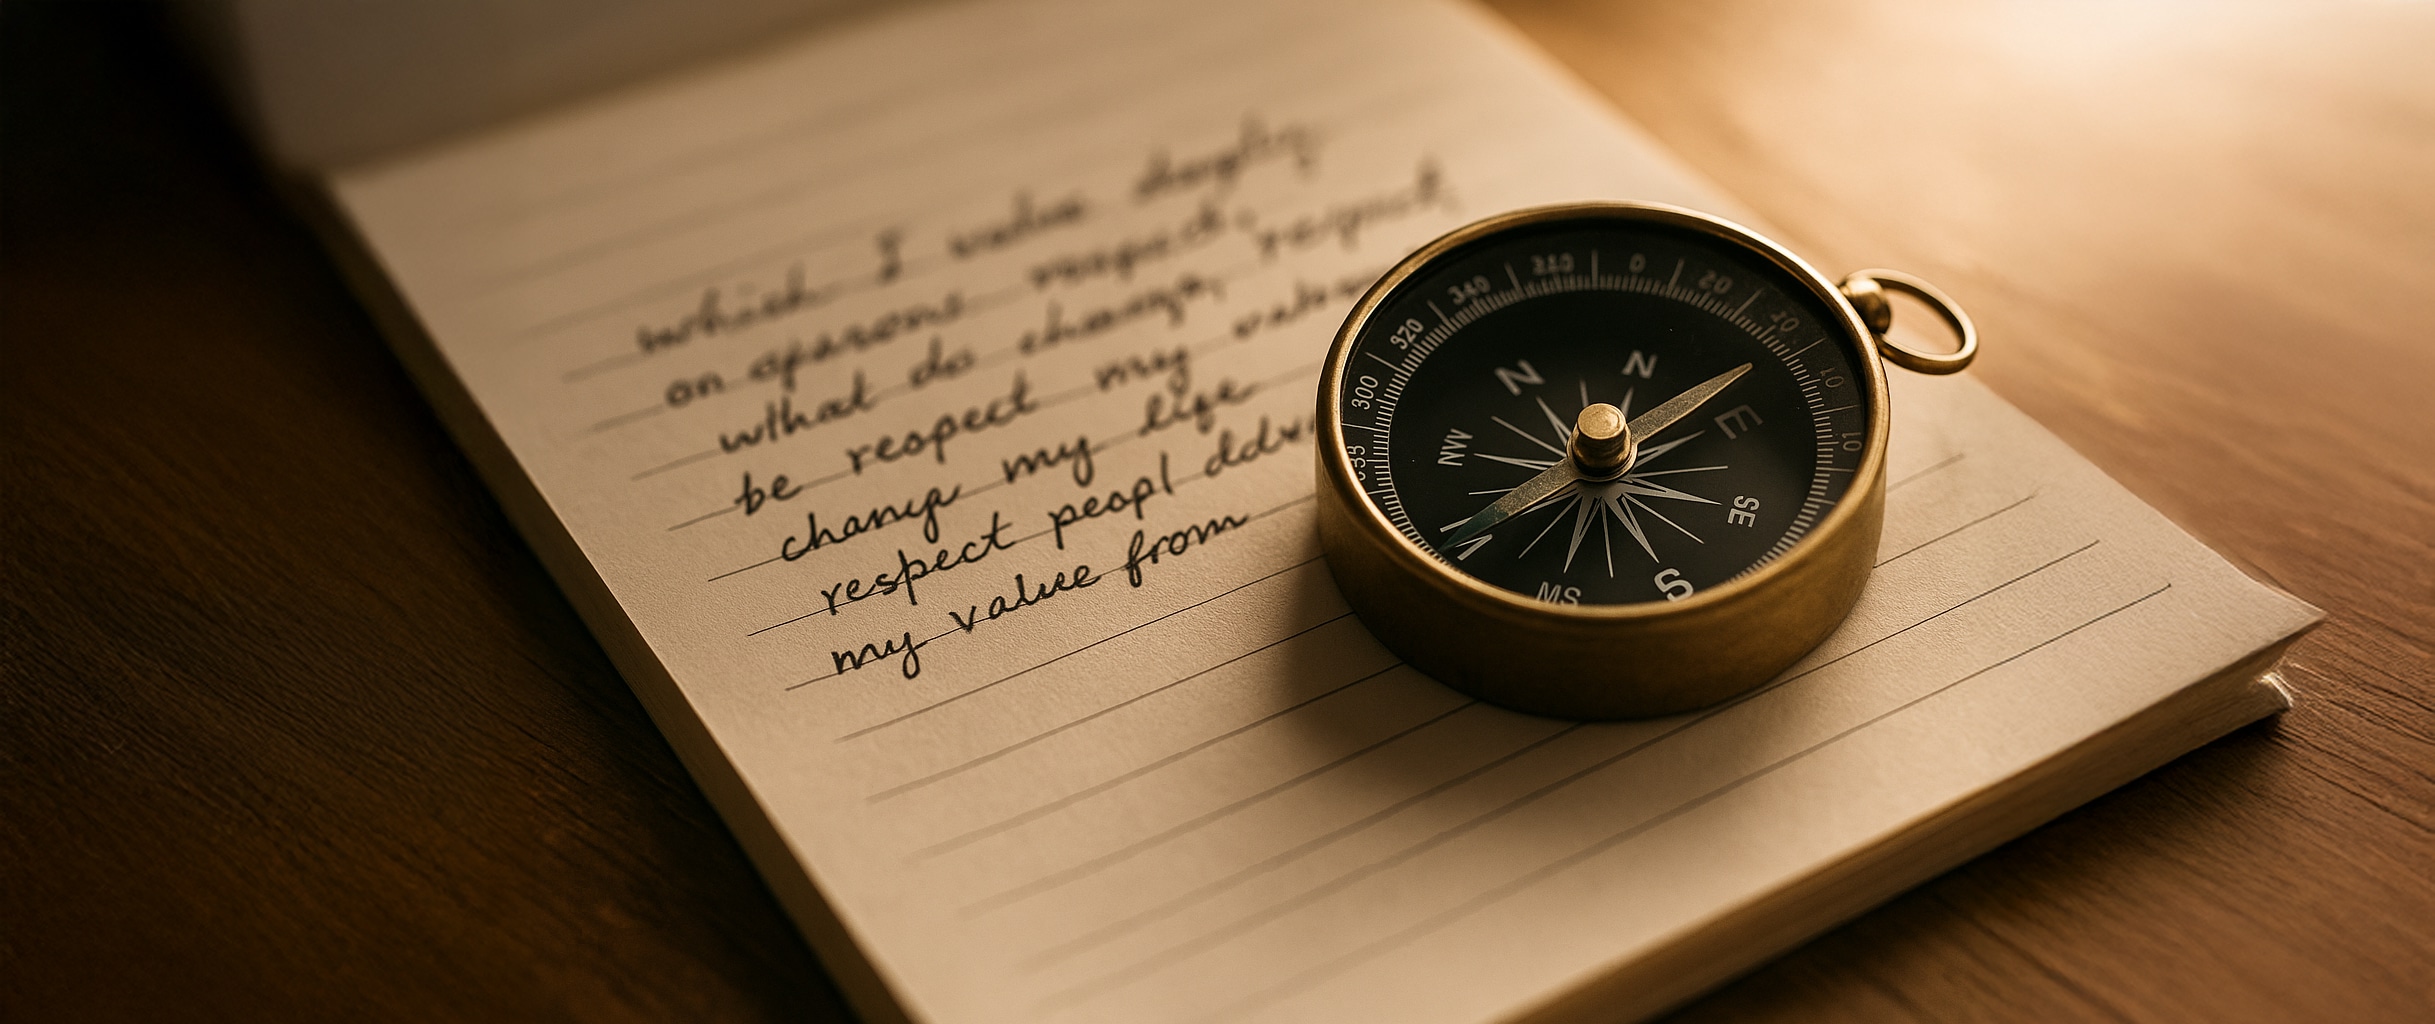 which I value deeply
on oparons respect,
what do change, respect,
be respect my value
change my life
respect peopl ddv
my value from
320
300
340
310
0
20
N
N
E
NW
SE
S
MS